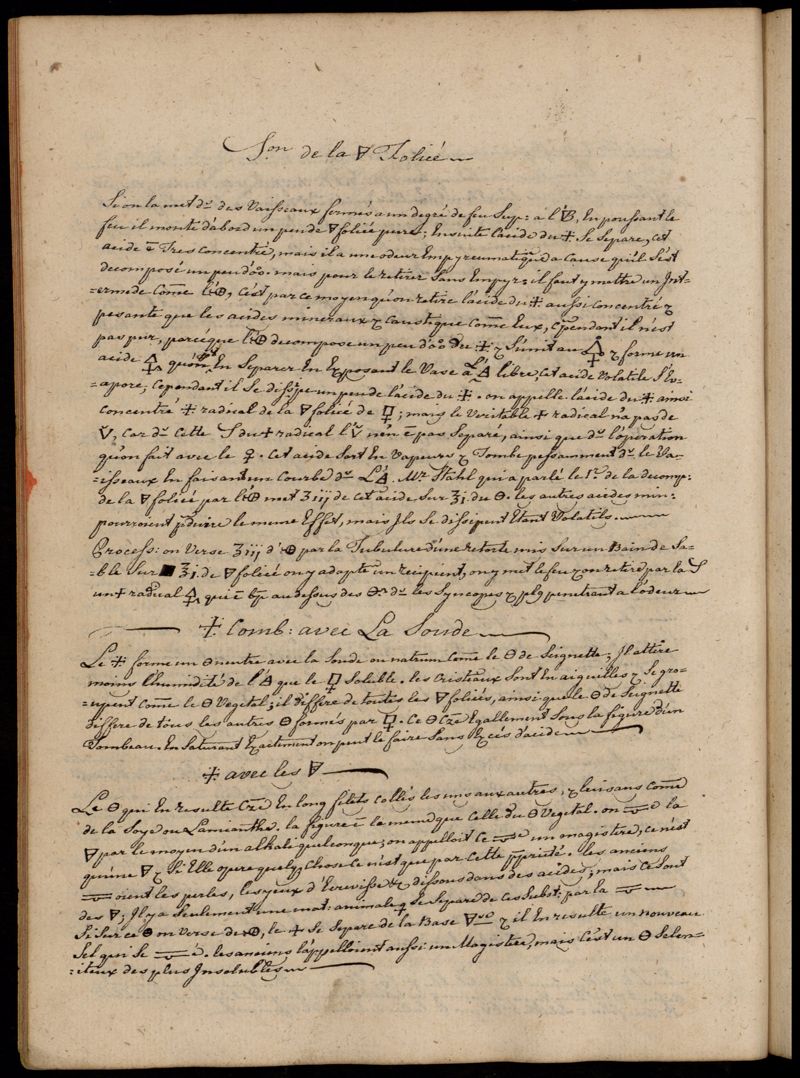 Son de la 🜃 Foliée
Si on la met dr des Vaisseaux fermés a un degré de feu Sup: a l'🜃B, En poussant le
feu il monte d'abord un peu de 🜃 foliée pure; Ensuite l'acide du 🜊 Se Separe, Cet
acide ē Tres Concentré, mais il a une odeur Empyreumatique a Cause qu'il S'est
decomposé un peu d'oo. mais pour le retirer Sans Empyr: il faut y mettre un Int-
=ermede Comē l'🜖, C'est par ce moyen qu'on retire l'acide du 🜊 aussi Concentré &
pesante que les acides mineraux & Caustique Comē Eux, Cependant il n'est
pas pur, parceque l'🜖 decompose un peu d'oo du 🜊 & S'unit au 🜍 & forme un
acide 🜍 qu'on peut En Separer En Exposant le Vase a l'🜁 libre, Cet acide Volatile S'Ev-
=apore, Cependant il Se dissipe un peu de l'acide du 🜊. on appelle l'acide du 🜊 ainsi
Concentré 🜊 radical de la 🜃 foliée de 🜿; mais le Veritable 🜊 radical n'a pas de
🜄, Car dr Cette S du 🜊 radical l' n'en ē pas Separé, ainsi que dr l'opération
qu'on fait avec le ♀. Cet acide Sort En Vapeurs & Tombe pesamment dr le Va-
=isseaux En faisant un Courbe dr L'🜁. Mr Stahl qui a parlé le 1r. de la decomp:
de la 🜃 foliée par l'🜖 met ʒiij de Cet acide Sur ʒj. du 🜔. les autres acides min:
pourroient produire le meme Effet, mais Ils Se dissipent Etant Volatils
Process: on Verse ʒiij d'🜖 par la Tubulure d'une retorte mis Sur un Bain de Sa-
=ble Sur ʒj. de 🜃 foliée on y adapte un recipient, on y met le feu & on retire par la S
un 🜊 radical 🜍 qui ē au dessous des dr les Syncopes & plus penetrant a l'odeur
🜊 Comb: avec La Soude
Le 🜊 forme un 🜔 neutre avec la Soude ou natrum Comē le 🜔 de Seignette; Il attire
moins l'humidité de l'🜁 que le 🜿 Soluble. les Cristaux Sont En aiguilles & Se gro-
=upent Comē le 🜔 Vegetal; il differe de toutes les 🜃 foliées, ainsi que le 🜔 de Seignette
differe de tous les autres 🜔 formés par 🜿. Ce 🜔 Czē Egallement Sous la figure d'un
Tombeau. En Saturant Exactement on peut le faire Sans Excés d'acide
🜊 avec les 🜃
Le 🜔 qui En resulte Czē En long filets Collés les uns aux autres, & luisans Comē
de la Soye ou L'amianthe. la figure ē la meme que Celle du 🜔 Vegetal. on é la
🜃 par le moyen d'un alkali quelconque; on appelloit ce é un magistere, Ce n'est
qu'une 🜃 & Si Elle opere quelq chose Ce n'est que par Cette proprieté. les anciens
oient les perles, les yeux d'Ecrevisse &c dissous dans des acides; mais Ce Sont
des 🜃; Il y a Seulement une mat: animale qui Se Separe de Ces Subst: par la
Si Sur ce 🜔 on Verse du 🜖, le 🜊 Se Separe de la Base 🜃se & il En resulte un nouveau
Sel qui Se é. les anciens l'appelloient aussi un Magistere, mais C'est un 🜔 Selen-
=iteux des plus Insolubles